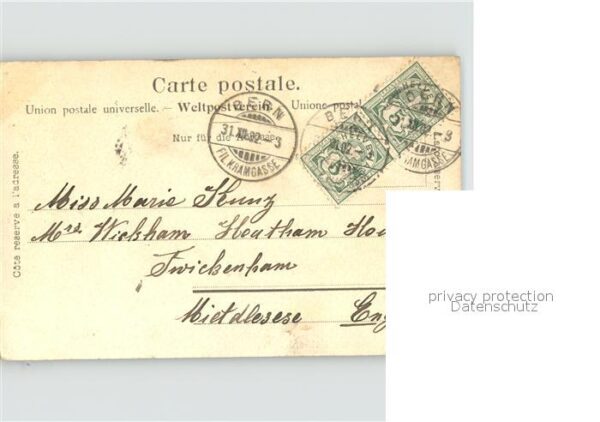 Carte postale.
Union postale universelle. – Weltpostverein – Unione postal
Nur für die Adresse.
BERN
31.XII.02.–3
FIL. KRAMGASSE
BERN
5
BERN
5
Côté réservé à l'adresse.
Miss Marie Kunz
Mrs. Wicksham Heatham Hou
Twickenham
Mietdlesese Eng
privacy protection
Datenschutz